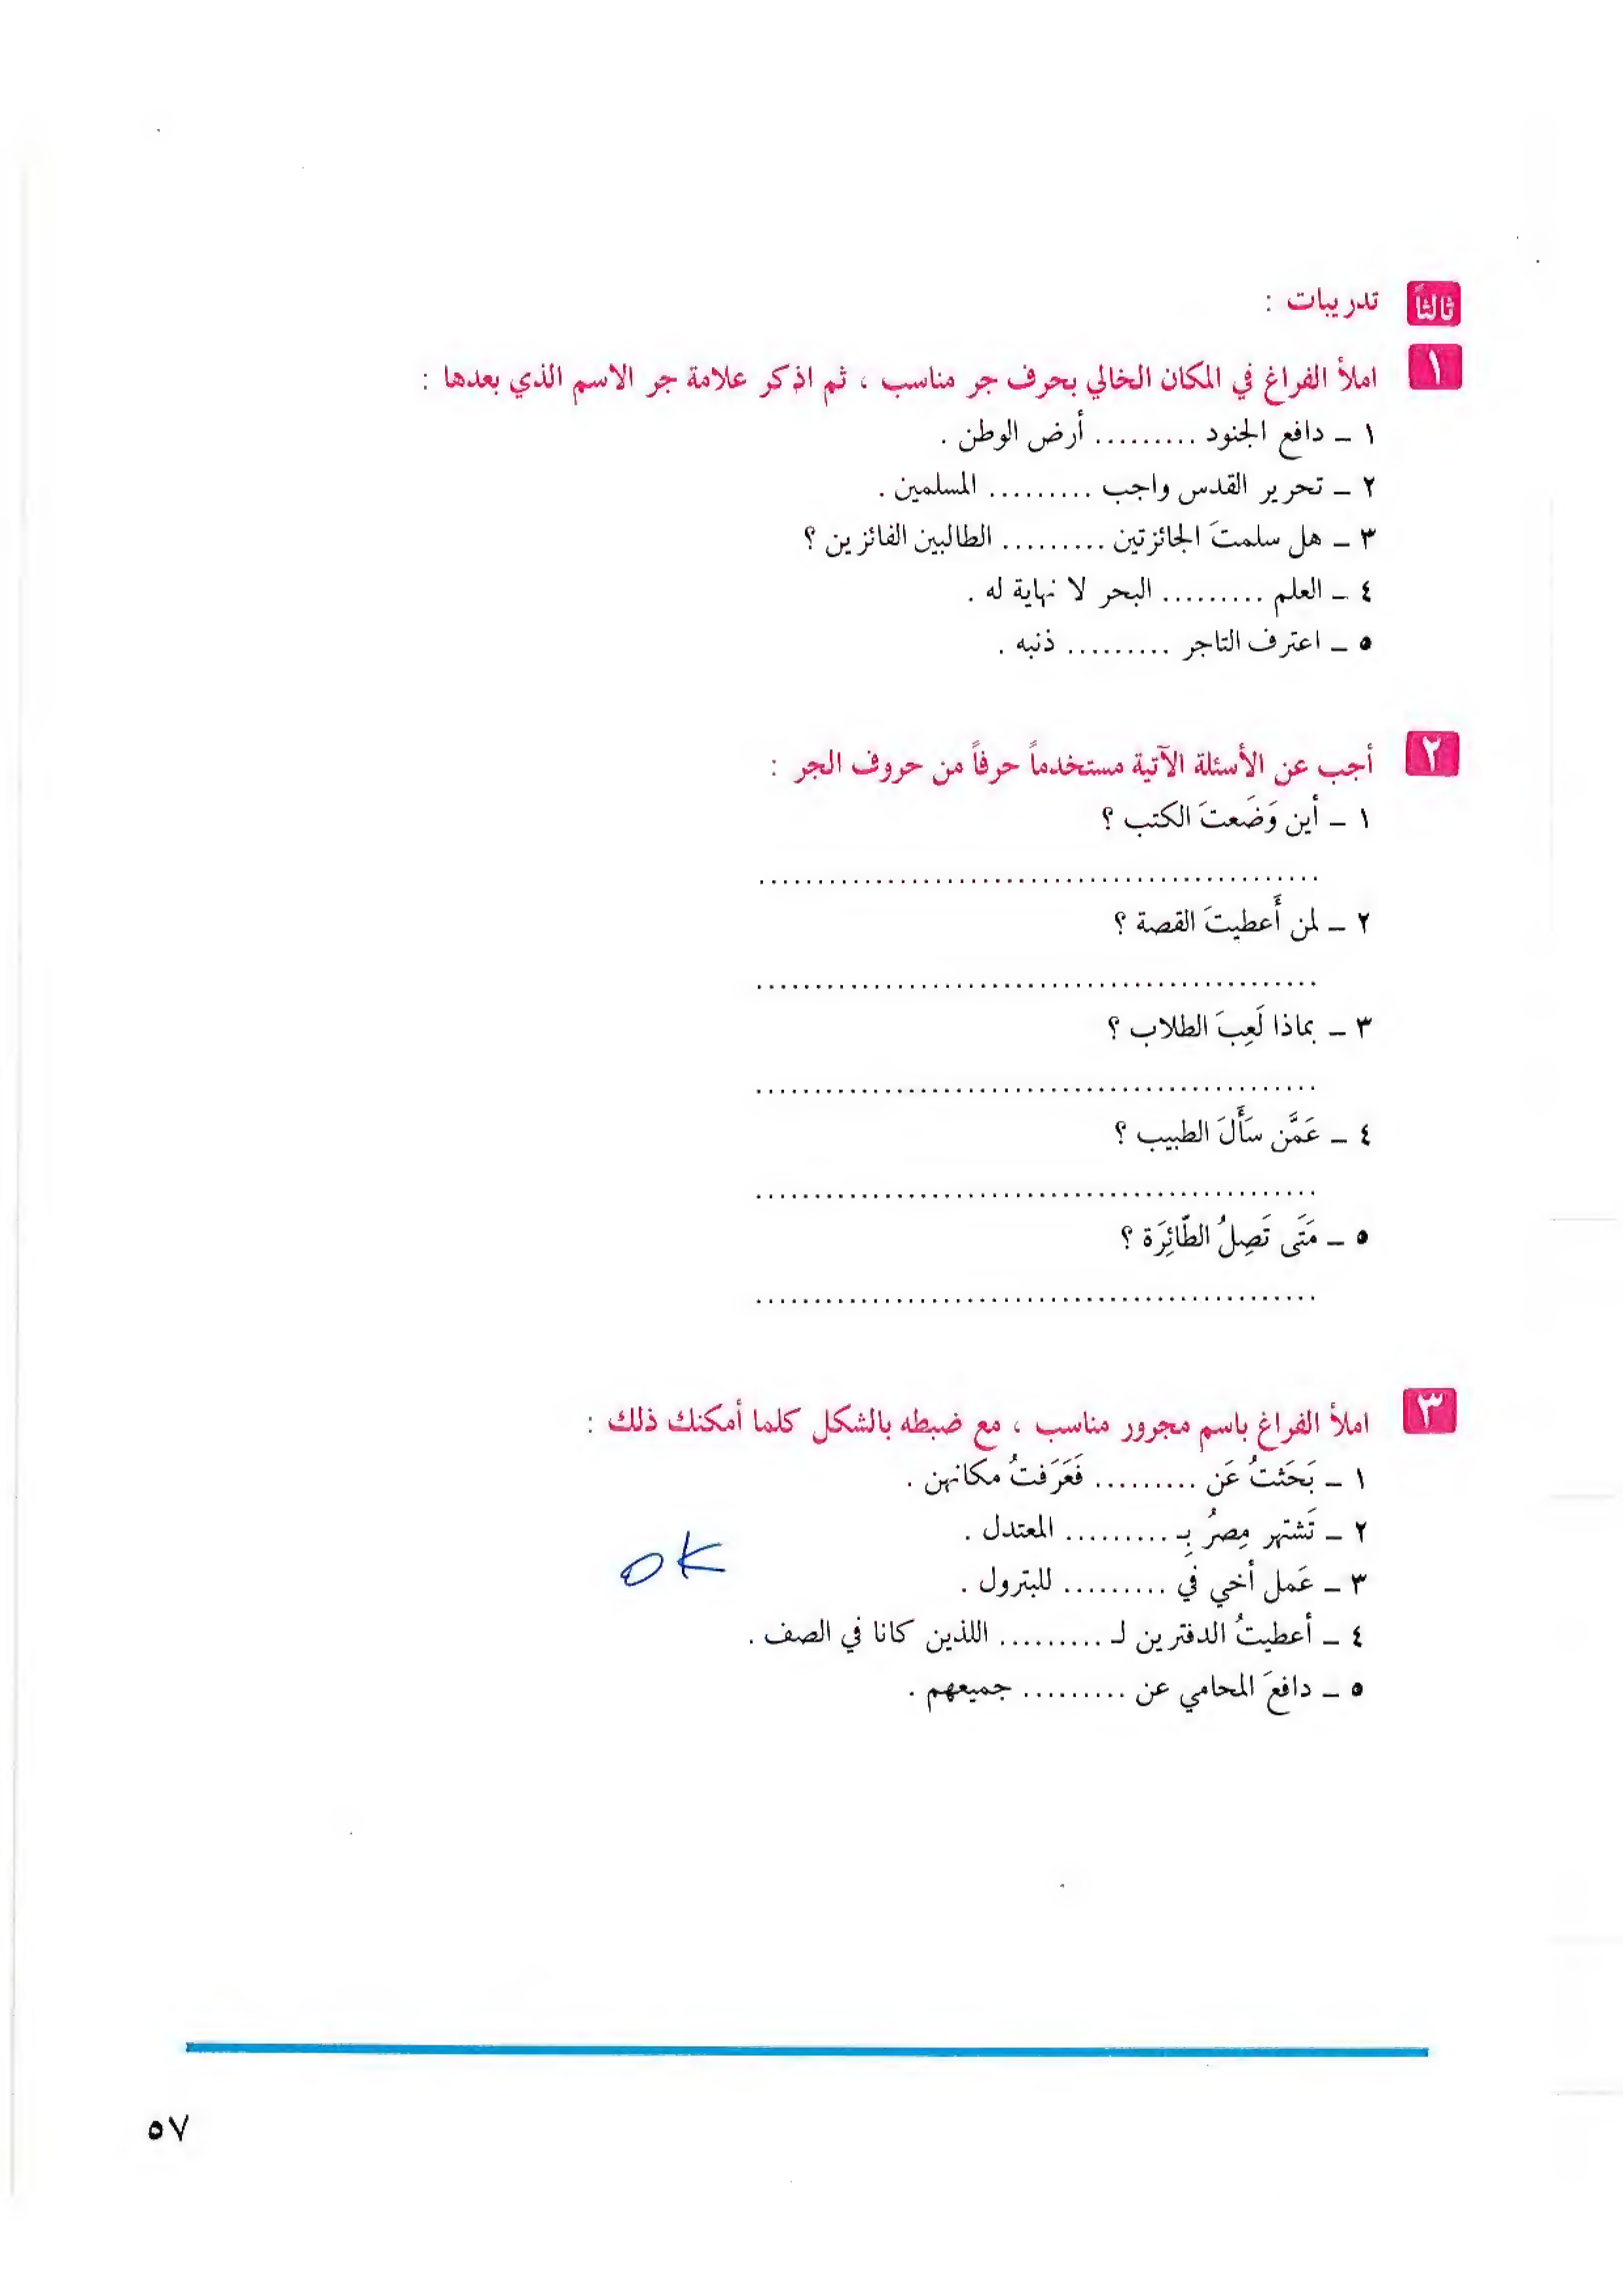 ثالثاً تدريبات :
١ املأ الفراغ في المكان الخالي بحرف جر مناسب ، ثم اذكر علامة جر الاسم الذي بعدها :
١ ـ دافع الجنود ......... أرض الوطن .
٢ ـ تحرير القدس واجب ......... المسلمين .
٣ ـ هل سلمتَ الجائزتين ......... الطالبين الفائزين ؟
٤ ـ العلم ......... البحر لا نهاية له .
٥ ـ اعترف التاجر ......... ذنبه .
٢ أجب عن الأسئلة الآتية مستخدماً حرفاً من حروف الجر :
١ ـ أين وَضَعتَ الكتب ؟
................................................
٢ ـ لمن أَعطيتَ القصة ؟
................................................
٣ ـ بماذا لَعِبَ الطلاب ؟
................................................
٤ ـ عَمَّن سَأَلَ الطبيب ؟
................................................
٥ ـ مَتَى تَصِلُ الطّائِرَة ؟
................................................
٣ املأ الفراغ باسم مجرور مناسب ، مع ضبطه بالشكل كلما أمكنك ذلك :
١ ـ بَحَثتُ عَن ......... فَعَرَفتُ مكانهن .
٢ ـ تَشتهر مِصرُ بِـ ......... المعتدل .
OK
٣ ـ عَمل أخي في ......... للبترول .
٤ ـ أعطيتُ الدفترين لـ ......... اللذين كانا في الصف .
٥ ـ دافعَ المحامي عن ......... جميعهم .
٥٧